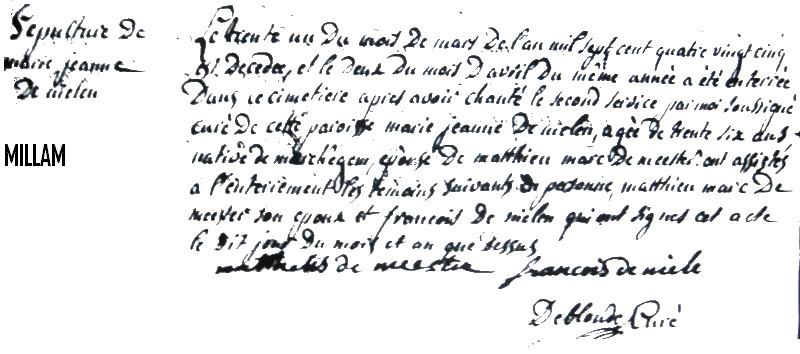 Sepulture De
marie jeanne
De nielen
MILLAM
Le trente un Du mois De mars De l'an mil sept cent quatre vingt cinq
est Decedée, et le Deux Du mois D'avril Du même année a été enterrée
Dans ce cimetiere apres avoir chanté le second service par moi soussigné
curé de cette paroisse marie jeanne De nielen, agée de trente six ans
native de merchêgem, epouse De matthieu marc de meester. ont assistés
a l'enterrement les temoins suivants matthieu marc De
meester son epoux et francois De nielen qui ont signés cet acte
le Dit jour Du mois et an que dessus
mattheus de meester francois de niele
Deblonde Curé